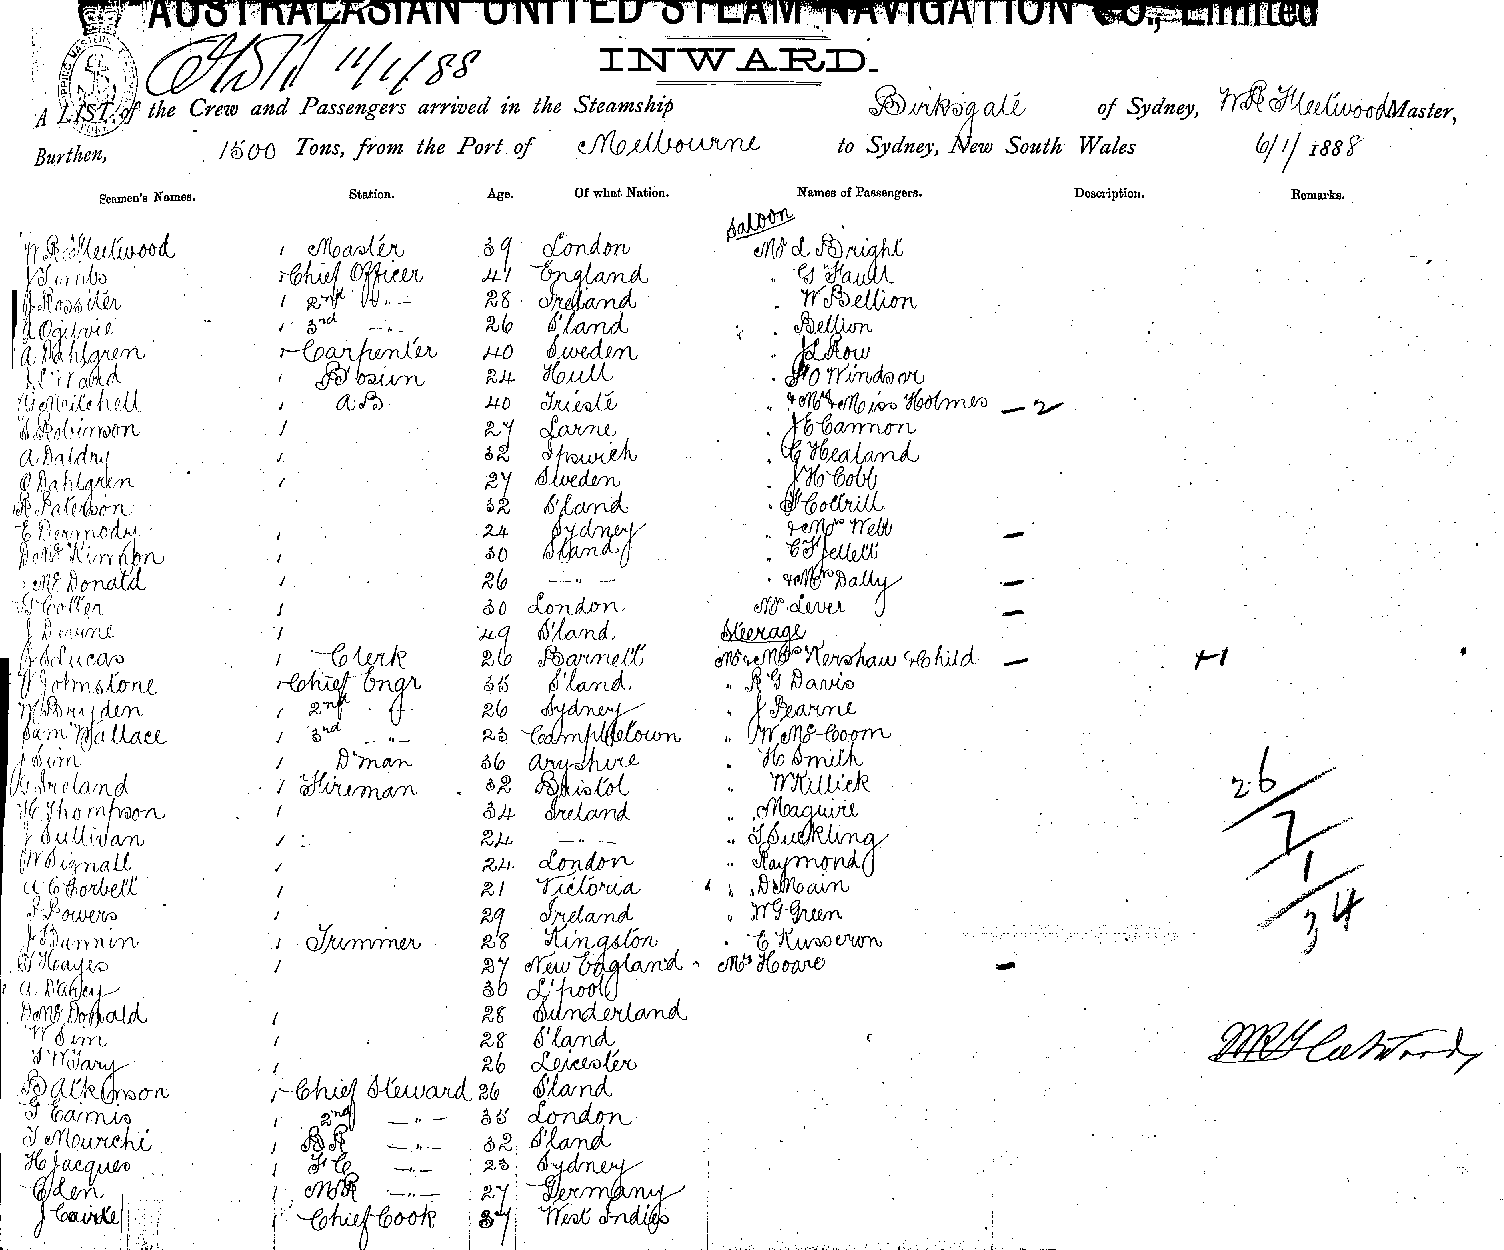 AUSTRALASIAN UNITED STEAM NAVIGATION CO., Limited
11/1/88
INWARD.
A LIST of the Crew and Passengers arrived in the Steamship Birksgate of Sydney, W R Fleetwood Master,
Burthen, 1500 Tons, from the Port of Melbourne to Sydney, New South Wales 6/1/1888
Seamen's Names. Station. Age. Of what Nation. Names of Passengers. Description. Remarks.
Saloon
W R Fleetwood 1 Master 39 London Mr L Bright
J Timbs 1 Chief Officer 41 England " G Fault
J Rossiter 1 2nd O. " 28 Ireland " W Bellion
A Ogilvie 1 3rd " 26 S'land " Bellion
A Dahlgren 1 Carpenter 40 Sweden " J L Row
J S Ward 1 Bosun 24 Hull " F O Windsor
G Mitchell 1 A B 40 Trieste " & Mrs & Miss Holmes — 2
S Robinson 1 27 Larne " J E Cannon
A Daldry 1 32 Ipswich " G Healand
C Dahlgren 1 27 Sweden " J H Cobb
R Paterson 32 S'land " Cottrill
E Dermody 1 24 Sydney " & Mrs Webb —
Kinnon 1 30 S'land " C Jellett
McDonald 1 26 — " — " & Mrs Dally —
Cotter 1 30 London Mr Lever —
J Deurne 1 49 S'land Steerage
J S Lucas 1 Clerk 26 Barnett Mr & Mrs Kershaw & Child — +1
Johnstone 1 Chief Engr 35 S'land " R G Davis
W Dryden 1 2nd " 26 Sydney " J Pearne
Sam Wallace 1 3rd " 23 Campbletown " W McCoom
J Sim 1 D'man 36 Aryshire " H Smith
G Ireland 1 Fireman 32 Bristol W Killick
H Thompson 1 34 Ireland " Maguire
J Sullivan 1 24 — " — " T Suckling
W Signall 1 24 London " Raymond
A C Corbell 1 21 Victoria " D McMain
J Powers 1 29 Ireland " W G Green
J Bannin 1 Trimmer 28 Kingston " C Kusserow
T Hayes 1 27 New England Mrs Hoare —
A Darcy 30 L'pool
D McDonald 1 28 Sunderland
W Sim 28 S'land
T W Gary 26 Leicester
B Atkinson 1 Chief Steward 26 S'land
T Eamis 1 2nd — " — 35 London
T Mourchi 1 B R — " — 32 S'land
H Jacques 1 F C — " — 23 Sydney
C Iden 1 M R — " — 27 Germany
J Cairte 1 Chief Cook 37 West Indies
26
7
1
34
W R Fleetwood